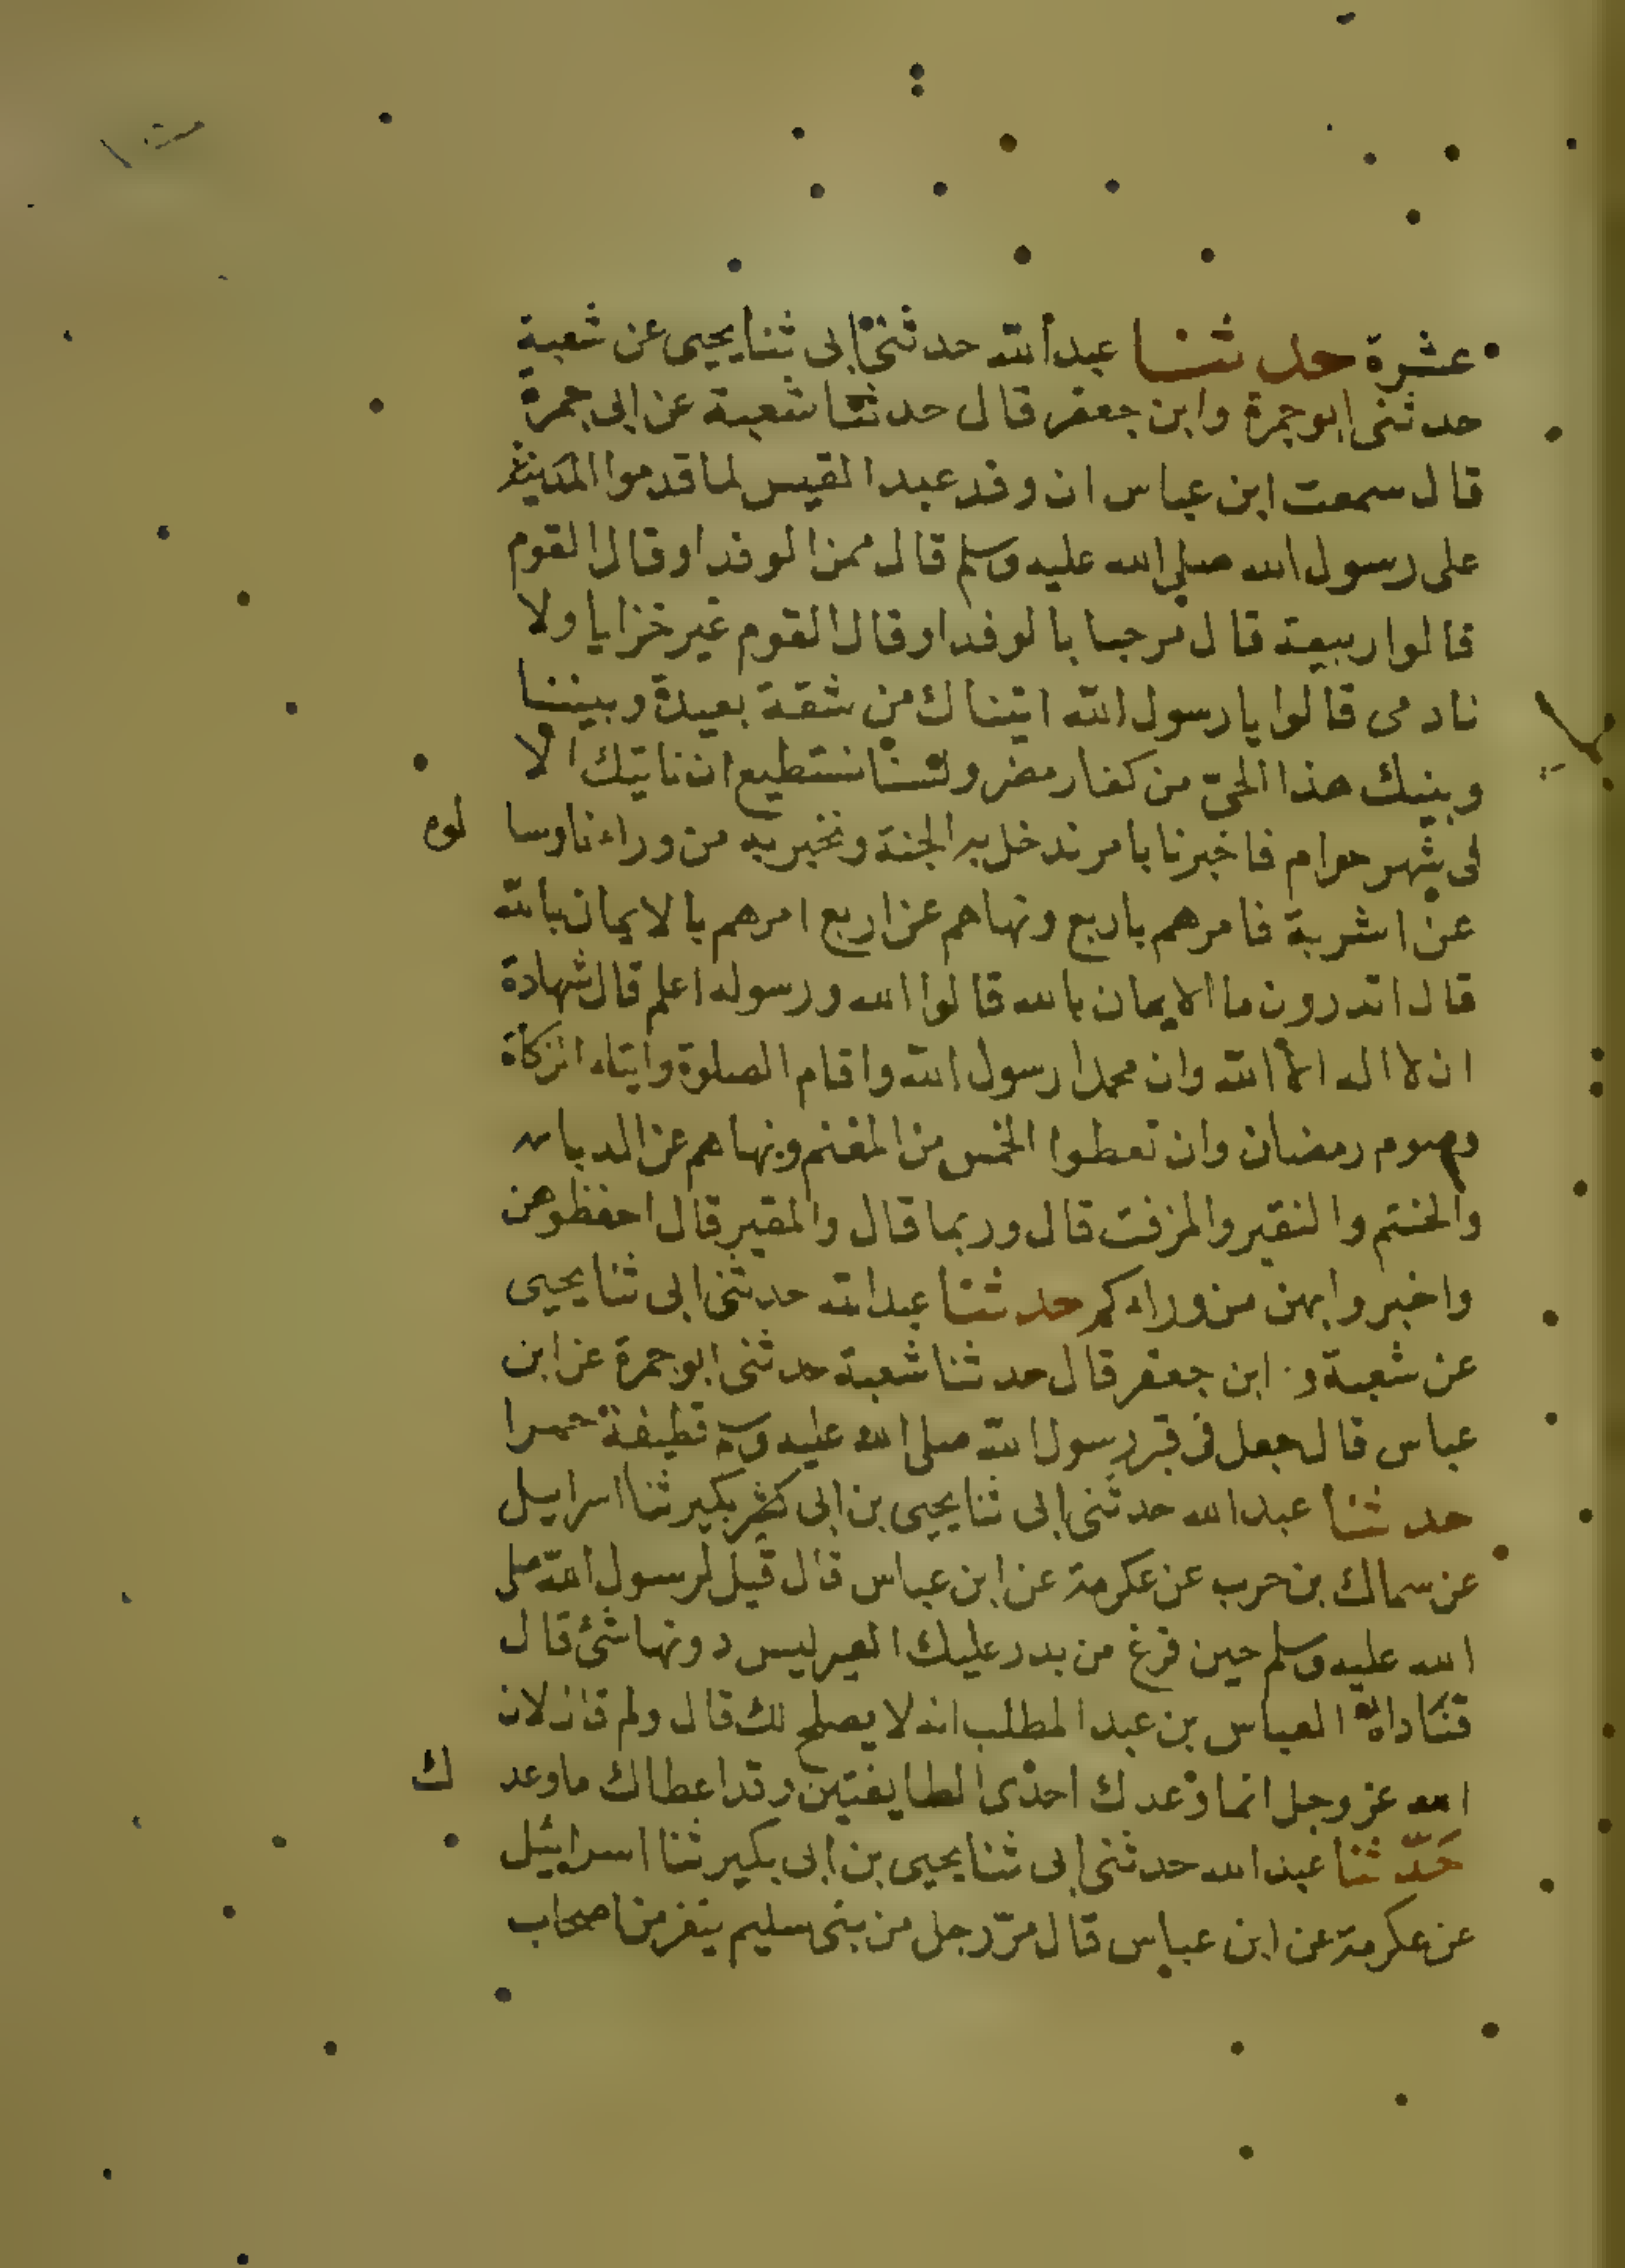 عشرة حدثنا عبد الله حدثني ابى ثنا يحيى عن شعبة
حدثنى ابو جمرة وابن جعفر قال حدثنا شعبة عن ابى جمرة
قال سمعت ابن عباس ان وفد عبد القيس لما قدموا المدينة
على رسول الله صلى الله عليه وسلم قال ممن الوفد او قال القوم
قالوا ربيعة قال مرحبا بالوفد او قال القوم غير خزايا ولا
نادمى قالوا يا رسول الله اتيناك من شقة بعيدة وبيننا
وبينك هذا الحىّ من كفار مضر ولسنا نستطيع ان ناتيك الا
فى شهر حرام فاخبرنا بامر ندخل به الجنة ونخبر به من وراءنا وسا لوه
عن اشربة فامرهم باربع ونهاهم عن اربع امرهم بالايمان بالله
قال اتدرون ما الايمان بالله قالوا الله ورسوله اعلم قال شهادة
ان لا اله الا الله وان محمدا رسول الله واقام الصلوة وايتاء الزكاة
وصوم رمضان وان تعطوا الخمس من المغنم ونهاهم عن الدباء
والحنتم والنقير والمزفت قال وربما قال والمقير قال احفظوهن
واخبروا بهن من وراءكم حدثنا عبد الله حدثنى ابى ثنا يحيى
عن شعبة و ابن جعفر قال حدثنا شعبة حدثنى ابو جمرة عن ابن
عباس قال جعل فى قبر رسول الله صلى الله عليه وسلم قطيفة حمرا
حدثنا عبد الله حدثنى ابى ثنا يحيى بن ابى بكير ثنا اسراييل
عن سماك بن حرب عن عكرمة عن ابن عباس قال قيل لرسول الله صلى
الله عليه وسلم حين فرغ من بدر عليك العير ليس دونها شئ قال
فناداه العباس بن عبد المطلب انه لا يصلح لك قال ولم قال لان
الله عز وجل انما وعدك احدى الطايفتين وقد اعطاك ما وعد ك
حَدّثنا عبد الله حدثنى ابى ثنا يحيى بن ابى بكير ثنا اسرائيل
عن عكرمة عن ابن عباس قال مرّ رجل من بنى سليم بنفر من اصحاب